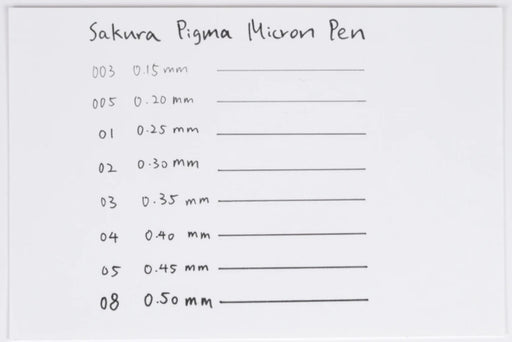 Sakura Pigma Micron Pen
003 0.15 mm
005 0.20 mm
01 0.25 mm
02 0.30 mm
03 0.35 mm
04 0.40 mm
05 0.45 mm
08 0.50 mm